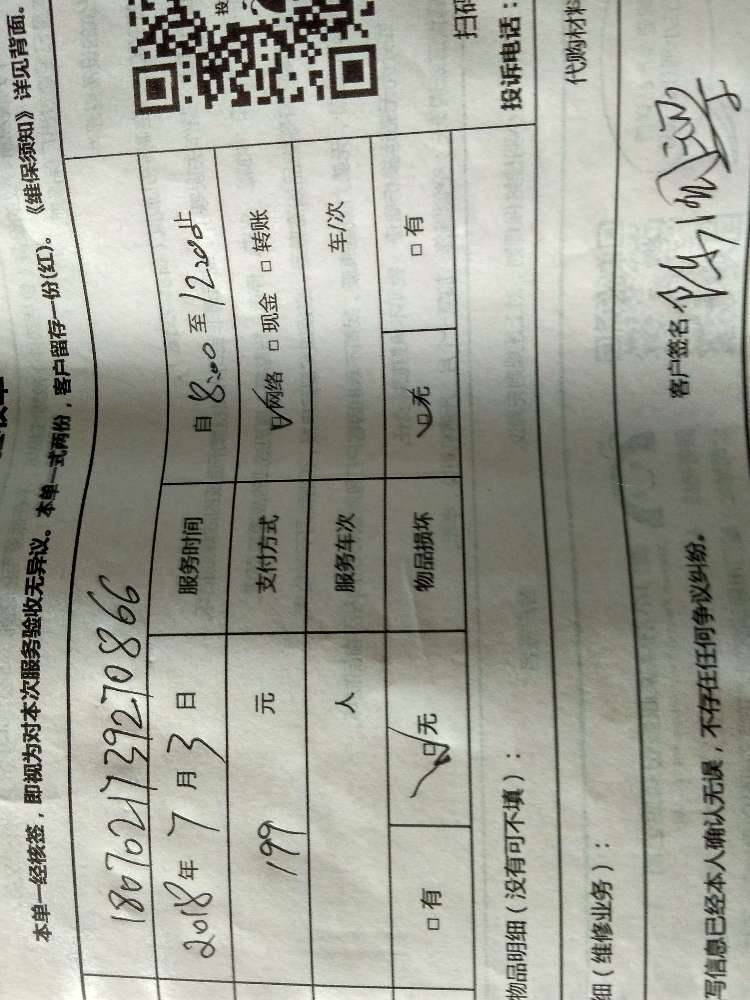 本单一经核签，即视为对本次服务验收无异议。本单一式两份，客户留存一份(红)。《维保须知》详见背面。
1807021739270866
2018年 7 月 3 日 服务时间 自 8:00 至 12:00止
199 元 支付方式 ☑网络 □ 现金 □ 转账
人 服务车次 车/次
□ 有 ☑无 物品损坏 ☑无 □ 有
扫码
投诉电话：
物品明细（没有可不填）：
代购材料
细（维修业务）：
写信息已经本人确认无误，不存在任何争议纠纷。 客户签名